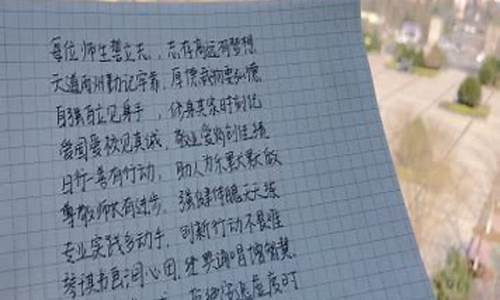 每位师生誓立志，志存高远有梦想
天道酬州勤记牢着，厚德载物要弘德
自强自立见身手，修身美家时刻记
爱国爱校见真诚，敬业爱岗创佳绩
日行一善有行动，助人为乐默默做
尊敬师长有进步，强身健体天天练
专业实践多动手，创新行动不畏难
琴棋书画润心田，经典诵唱增智慧